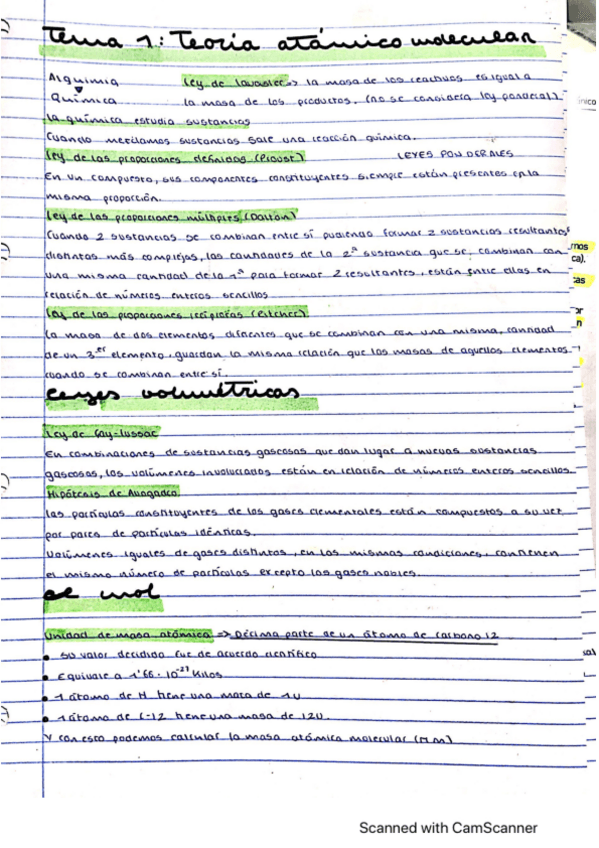 Tema 1: Teoría atómico molecular
Alquimia Ley de Lavoisier => la masa de los reactivos es igual a
Química la masa de los productos. (no se considera ley ponderal).
La química estudia sustancias
Cuando mezclamos sustancias sale una reacción química.
Ley de las proporciones definidas (Proust) LEYES PONDERALES
En un compuesto, sus componentes constituyentes siempre están presentes en la
misma proporción.
Ley de las proporciones múltiples (Dalton)
Cuando 2 sustancias se combinan entre sí pudiendo formar 2 sustancias resultantes
distintas más complejas, las cantidades de la 2ª sustancia que se combinan con
una misma cantidad de la 1ª para formar 2 resultantes, están entre ellas en
relación de números enteros sencillos
Ley de las proporciones recíprocas (Ritcher)
La masa de dos elementos diferentes que se combinan con una misma cantidad
de un 3er elemento, guardan la misma relación que las masas de aquellos elementos
cuando se combinan entre sí.
Leyes volumétricas
Ley de Gay-Lussac
En combinaciones de sustancias gaseosas que dan lugar a nuevas sustancias
gaseosas, los volúmenes involucrados están en relación de números enteros sencillos.
Hipótesis de Avogadro
Las partículas constituyentes de los gases elementales están compuestos a su vez
por pares de partículas idénticas.
Volúmenes iguales de gases distintos, en las mismas condiciones, contienen
el mismo número de partículas excepto los gases nobles.
El mol
Unidad de masa atómica => Décima parte de un átomo de carbono 12
• Su valor decidido fue de acuerdo científico
• Equivale a 1'66 · 10-27 Kilos
• 1 átomo de H tiene una masa de 1U
• 1 átomo de C-12 tiene una masa de 12U.
Y con esto podemos calcular la masa atómica molecular (M.m)
Scanned with CamScanner